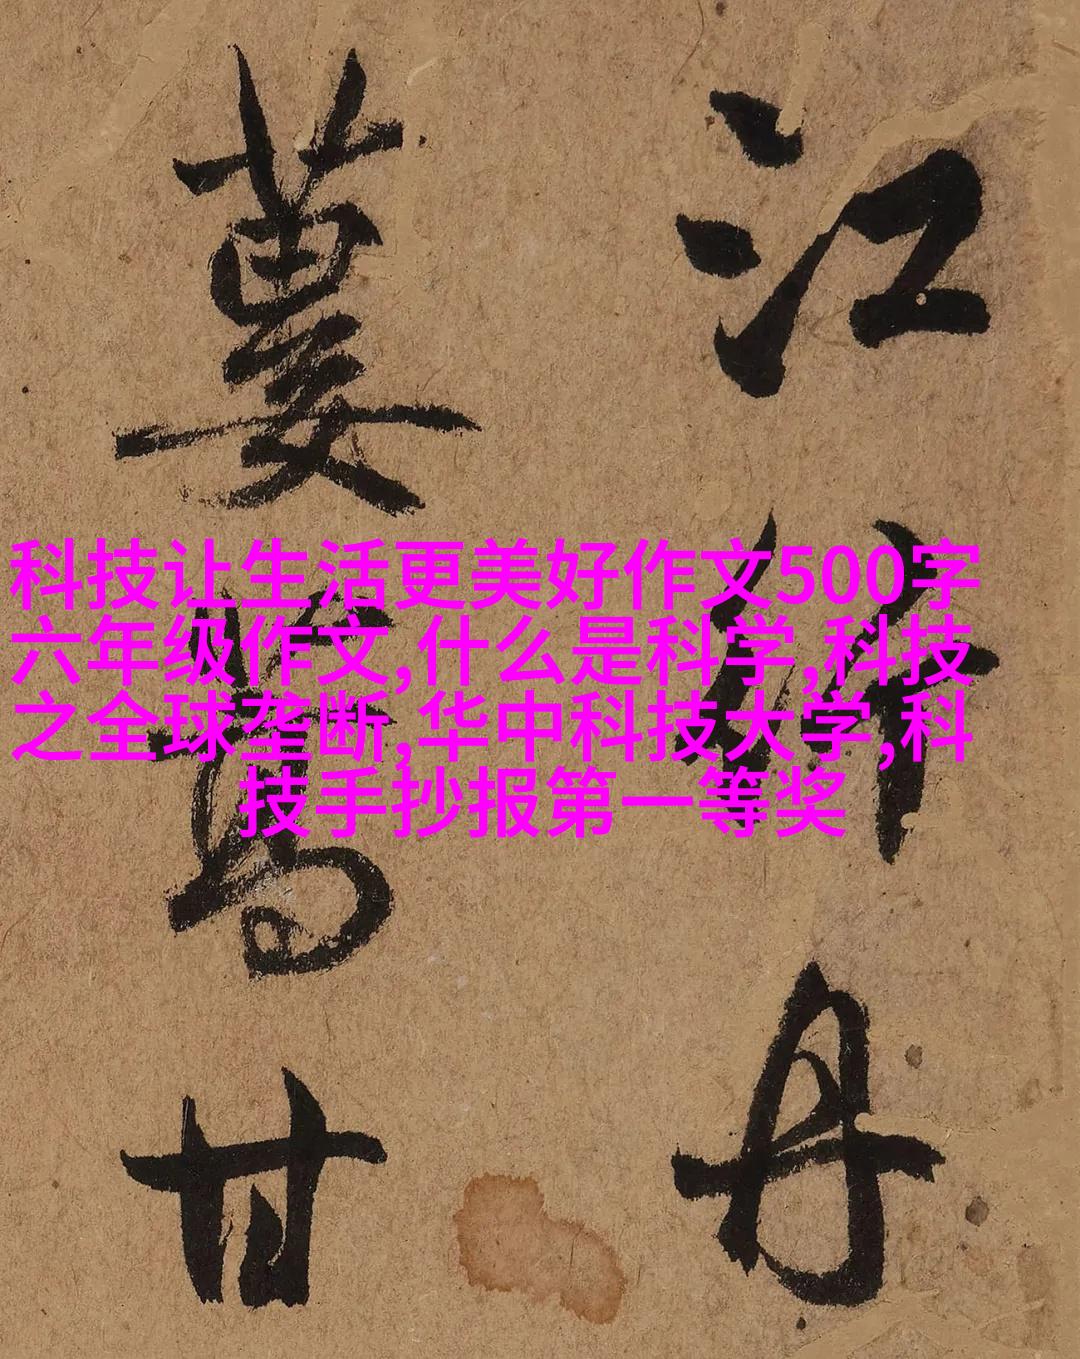 科技让生活更美好作文500字
六年级作文,什么是科学,科技
之全球垄断,华中科技大学,科
技手抄报第一等奖
江丹
蔓甘